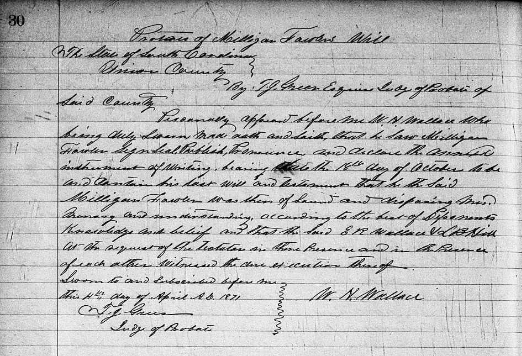 30
Probate of Milligan Fowlers Will
The State of South Carolina
Union County
By T. J. Greer Esquire Judge of Probate of
Said County
Personally appeared before me W. H. Wallace who
being duly Sworn Made oath and Saith that he Saw Milligan
Fowler Sign Seal Publish Pronounce and declare the annexed
instrument of Writing bearing date the 18th day of October to be
and Contain his last Will and testament that he the Said
Milligan Fowler was then of Sound and disposing Mind
Memory and understanding according to the best of Deponents
Knowledge and belief and that the Said E. R. Wallace &
At the request of the testator in their Presence and in the Presence
of each other Witnessed the due execution thereof
Sworn to and Subscribed before me
this 4th day of April A.D. 1871
W. H. Wallace
T. J. Greer
Judge of Probate